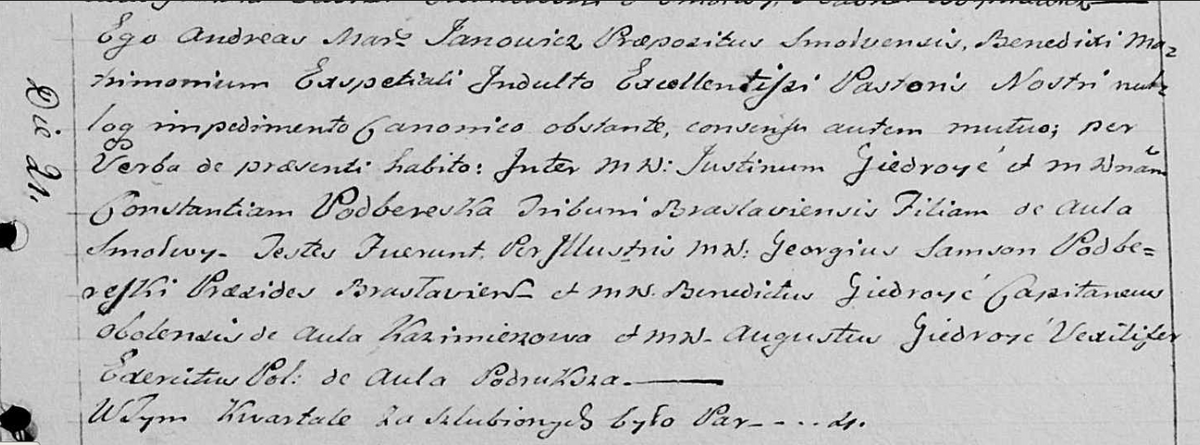 Ego Andreas Mar: Janowicz Præpositus Smolvensis, Benedixi Ma
trimonium Exspetiali Indulto Excellentissi Pastoris Nostri nul
Die 21,
loq impedimento Canonico obstante, consensu autem mutuo; per
Verba de præsenti habito: Inter MW: Justinum Giedroyć et MWnam
Constantiam Podbereska Tribuni Braslaviensis Filiam de Aula
Smolwy. Testes Fuerunt. Per Jllustris MW: Georgius Samson Podbe=
reski Præzides Braslaviens et MW. Benedictus Giedroyć Capitaneus
obolensis de Aula Kazimierzowa et MW. Augustus Giedroyć Vexilifer
Exercitus Pol: de Aula Podruksza.
W tym Kwartale za szlubionych było Par - ... 4.